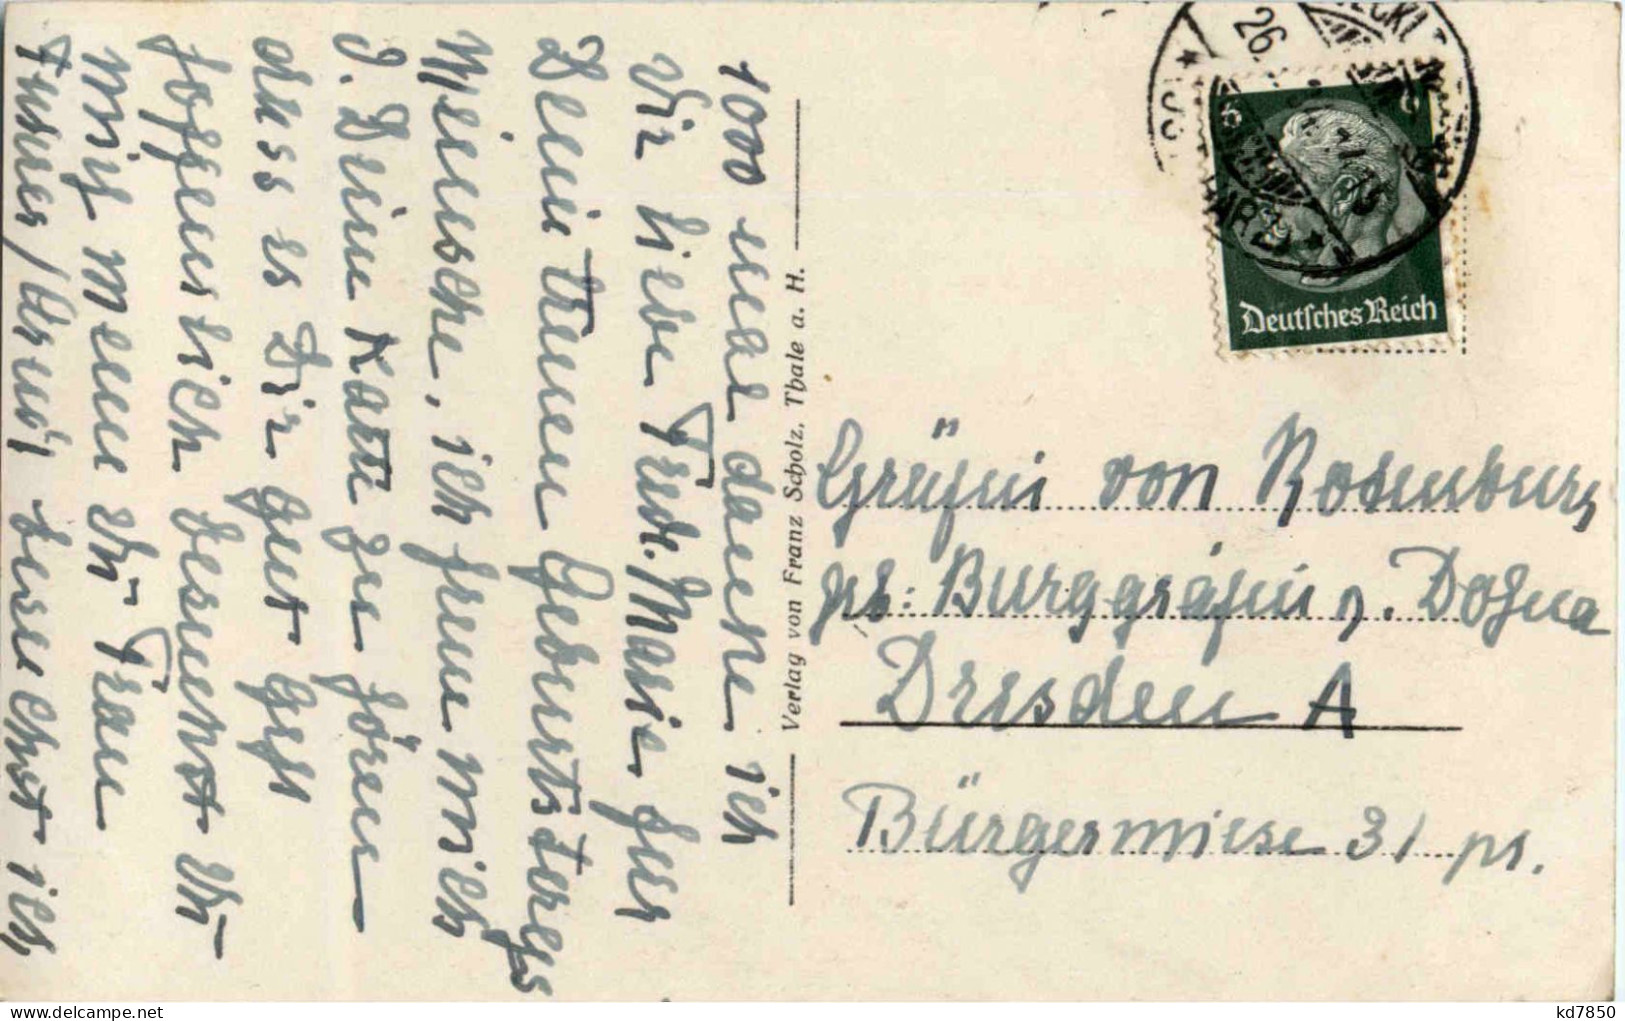 1000 mal danke ich
Dir liebe Frdr. Marie für
Deine treuen Geburtstags
Wünsche, ich freue mich
d. Deine Karte zu hören
dass es Dir gut geht
hoffentlich besuchst Du
mich wenn Du
Verlag von Franz Scholz, Thale a. H.
26.
HARZ
6
6
Deutsches Reich
Gräfin von Rosenburg
gb: Burggräfin v. Dohna
Dresden A
Bürgerwiese 31 pt.
kd7850